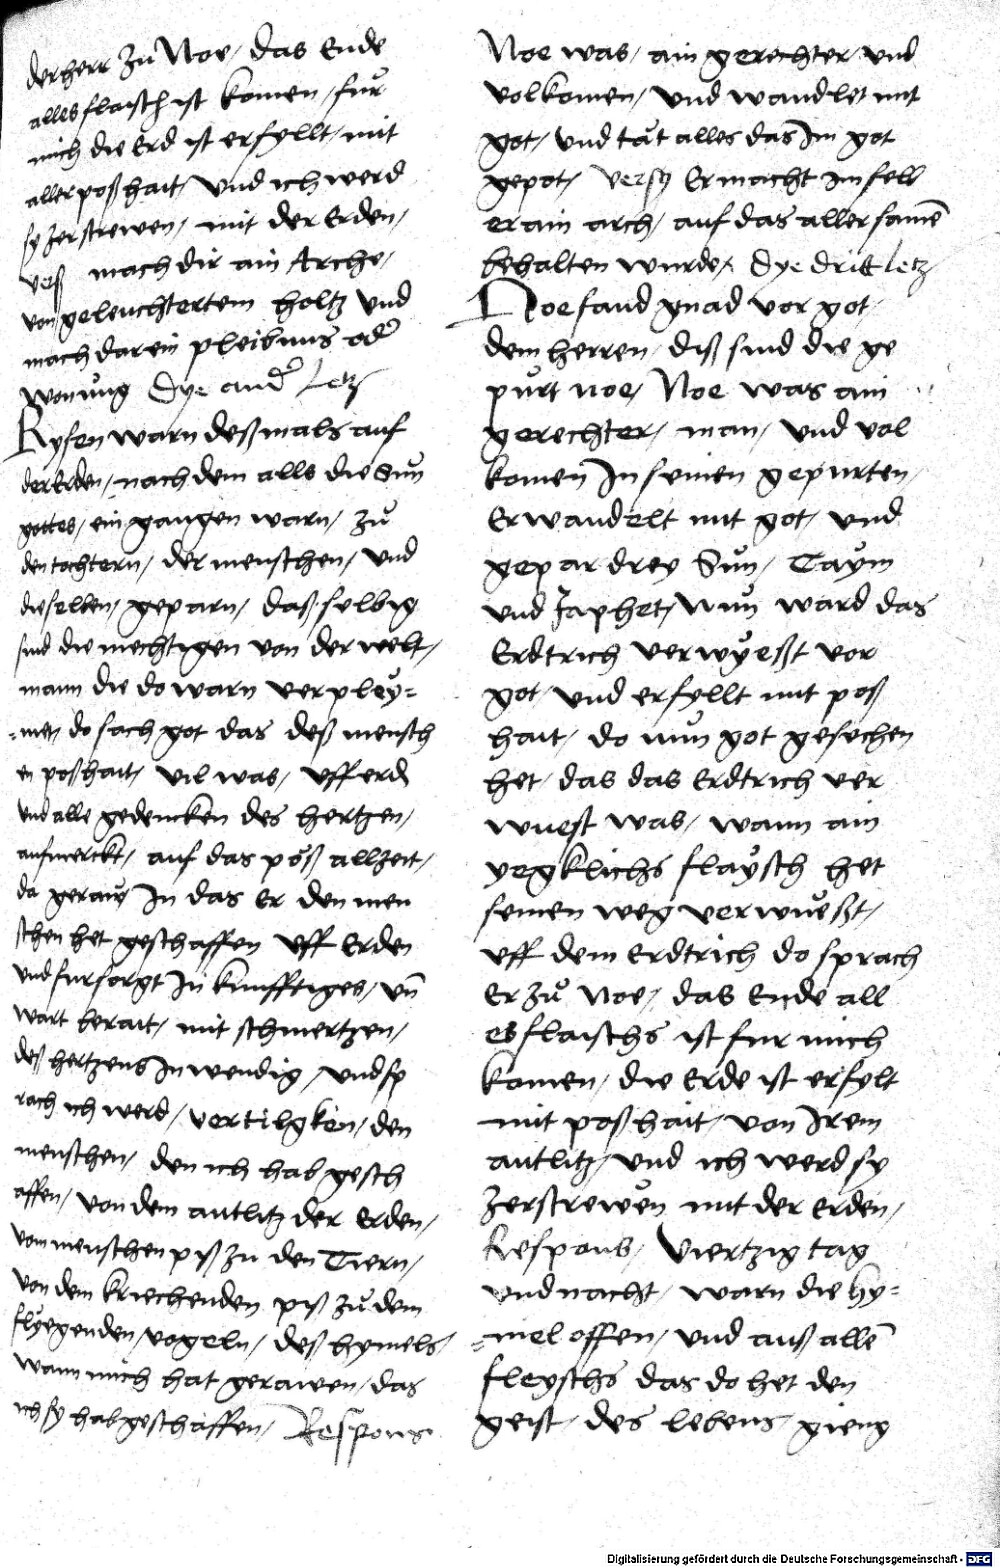 der herr zů Noe / das Ende
alles flaisch ist komen / für
mich die Erd ist erfyllt / mit
aller poßhait / und ich werd
sy zerstrewen / mit der Erden /
vers mach dir ain Arche /
von geleuchtertem holtz und
mach darein pleibnus oder
wonůng Dye ander Letz
Rysen warn deßmals auf
der Erden / nach dem alls die Sůn
gottes / ein gangen warn / zů
den tochtern / der menschen / und
dieselben / geparn / daß selbig
sind die mechtigen von der welt /
mann die do warn verpley=
=met / do sach got das deß mensch
en poßhait / vil was / uff erd
und alle gedencken des hertzen /
aufmerckt / auf das pöß allzeit /
da geraw In das Er den men
schen het geschaffen uff Erden
und fursorgt In kunfftiges / un̄
wart berait / mit schmertzen /
deß hertzens Inwendig / und sp
rach ich werd / vertilgken / den
menschen / den ich hab gesch
affen / von dem antlitz der Erden /
vom menschen piß zu den Tiern /
von dem kriechenden piß zů dem
flyegenden / vogeln / deß hymels /
wann mich hat gerawen / das
ich sy hab geschaffen / Respons
Noe was / ain gerechter / und
volkomen / und wandlet mit
got / und tät alles das Im got
gepot / Versy Er macht Im sell
er ain arch / auf das aller samē
behalten wurde / Dye dritt Letz
Noe fand gnad vor got
dem herren / diß sind die ge
pürt noe / Noe was ain
gerechter / man / und vol
komen In seinen gepurten /
Er wandelt mit got / und
gepar drey Sůn / Caym
und Japhet / Nun ward das
Erdtrich verwyeßt vor
got / und erfyllt mit poß
hait / do nun got gesechen
het / das das Erdtrich ver
wuest was / wann ain
yegklichs flaysch het
seinen weg verwueßt /
uff dem Erdtrich do sprach
Er zů Noe / das Ende all
es flaischs ist fur mich
komen / die Erde ist erfylt
mit poßhait / von Irem
antlitz / und ich werd sy
zerstrewen mit der Erden /
Respons / Viertzig tag
und nacht / warn die hy=
=mel offen / und auß allē
fleyschs das do het den
geist / des lebens / gieng
Digitalisierung gefördert durch die Deutsche Forschungsgemeinschaft - DFG